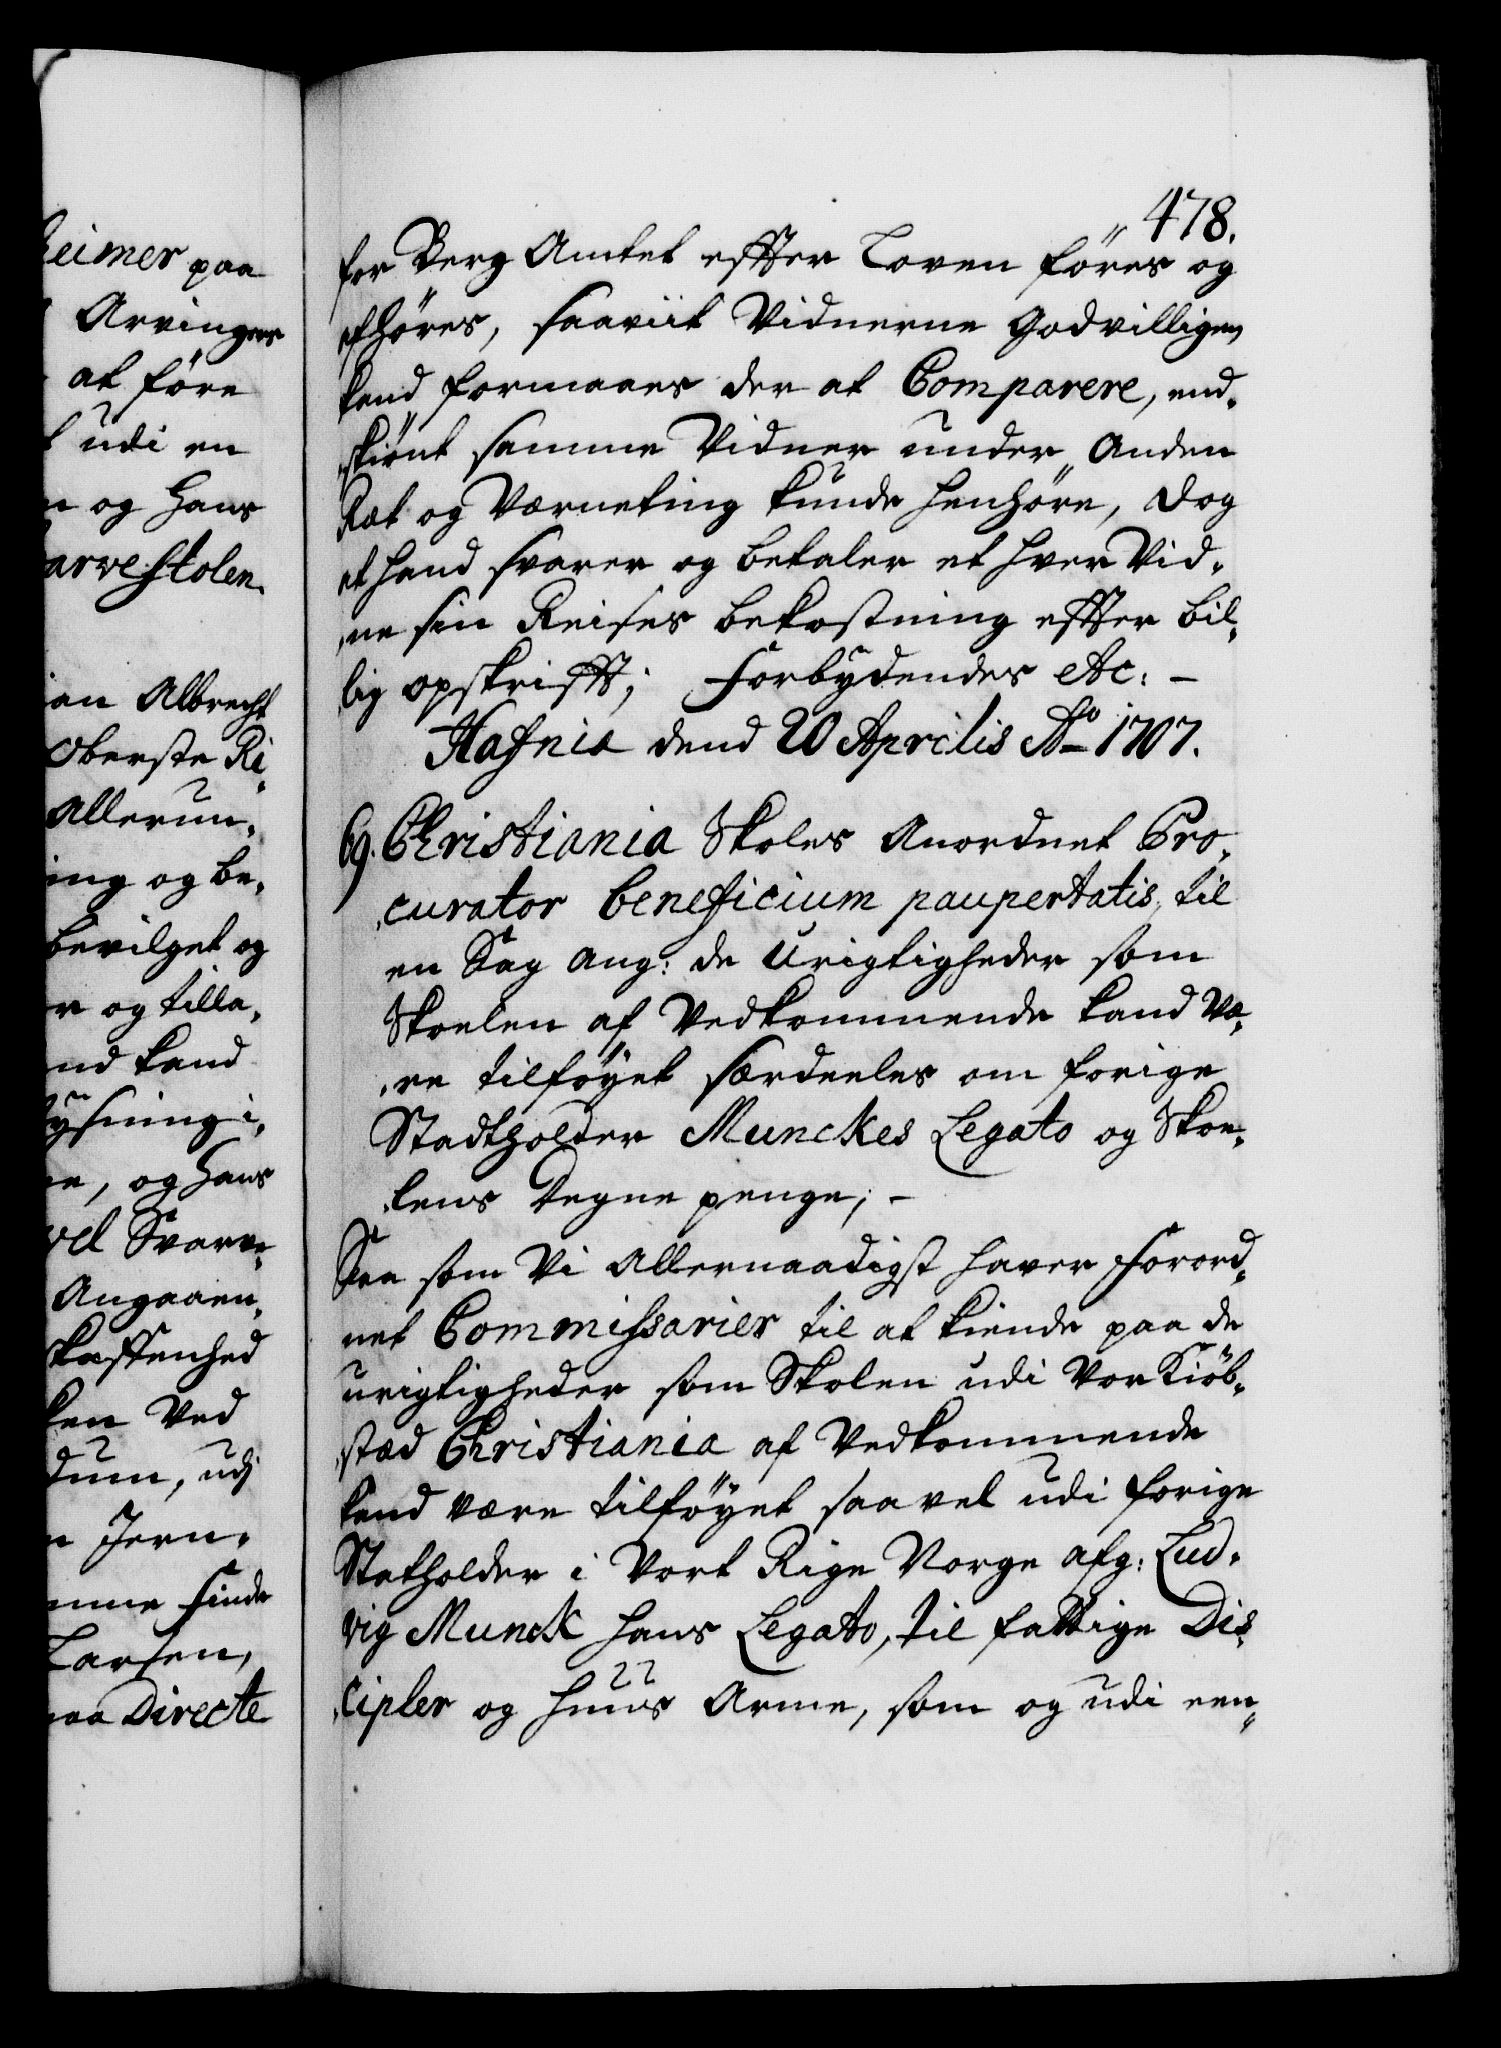 eimer paa
Arvinger
at före
udi en
og hans
arvestolen.
ian Albrecht
Oberste Ri„
Allerun„
ing og be„
bevilget og
r og tilla„
nd kand
lysning i„
e, og hans
vel Svarve„
Angaaen„
skaffenhed
ken Ved
dum, udj
n Jern„
mme finde
Larsen,
paa Directe
478.
for Berg Amtet effter Loven föres og
afhöres, saaviit Vidnerne Godvilligen
kand formaaes der at Comparere, end„
„skiönt samme Vidner under Anden
Ræt og Værneting kunde henhöre, dog
at hand svarer og betaler et hver Vid„
„ne sin Reises bekostning effter bil„
lig opskrifft; Forbydendes etc: –
Hafnia dend 20 Aprilis Ao 1707.
69. Christiania Skoles Anordnet Pro„
„curator beneficium paupertatis, til
en Sag ang: de Urigtigheder som
Skoelen af Vedkommende kand Væ„
„re tilföyet særdeeles om forige
Stadtholder Munckes Legato og Skoe„
„lens Degne penge; –
Saa som Vi Allernaadigst haver Forord„
net Commissarier til at kiende paa de
urigtigheder som Skolen udi Vor Kiöb„
„stæd Christiania af Vedkommende
kand være tilföyet saavel udi forige
Statholder i Vort Rige Norge afg: Lud„
vig Munck hans Legato, til fattige Dis„
„cipler og Huus Arme, som og udi een„